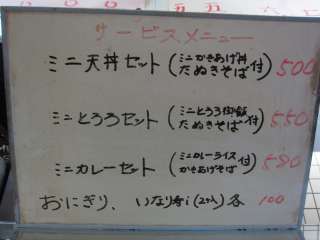 サービスメニュー
ミニ天丼セット（ミニかきあげ丼 たぬきそば 付） 500
ミニとろろセット（ミニとろろ御飯 たぬきそば 付） 550
ミニカレーセット（ミニカレーライス かきあげそば 付） 580
おにぎり、いなり寿し（2ヶ入）各 100